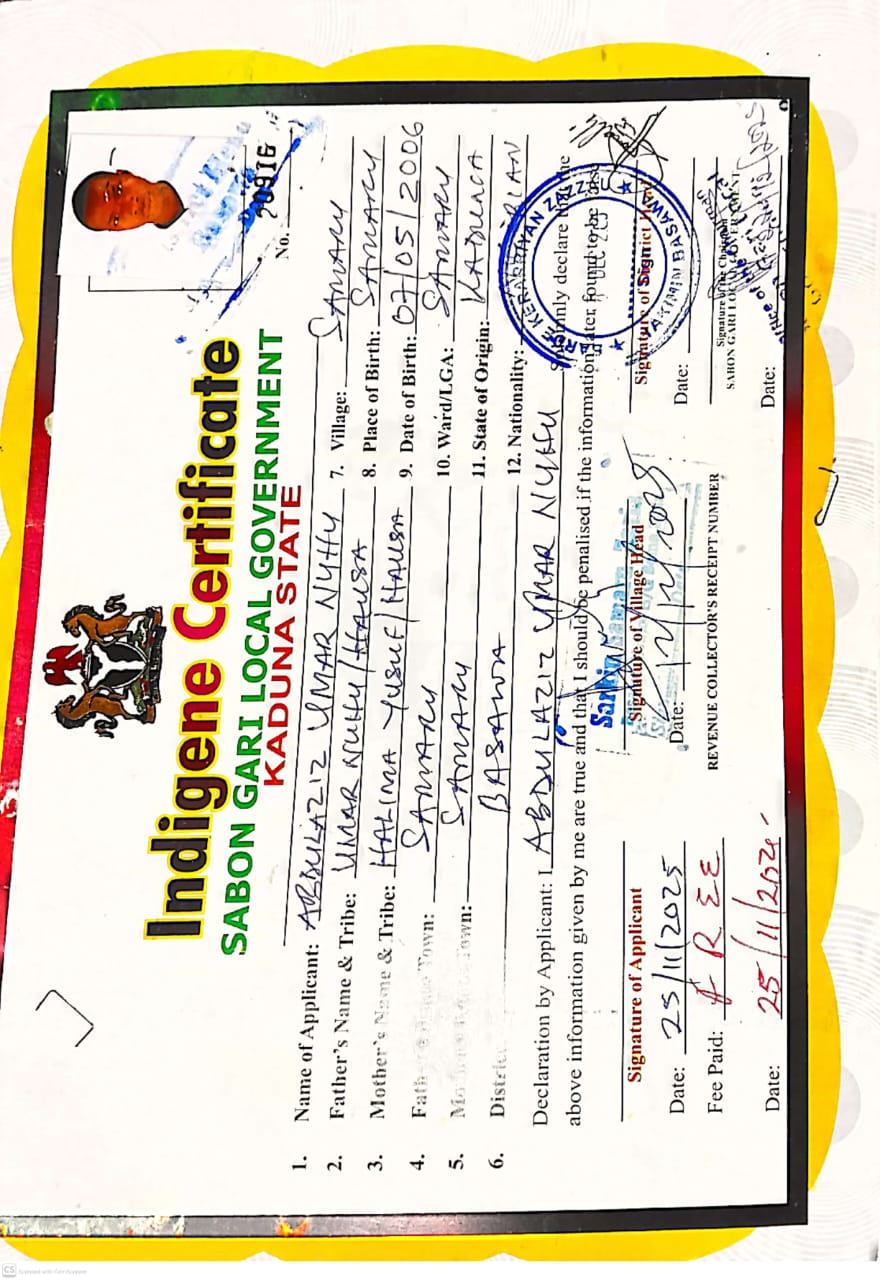 Indigene Certificate
SABON GARI LOCAL GOVERNMENT
KADUNA STATE
No. 20916
1. Name of Applicant: ABDULAZIZ UMAR NUHU
2. Father's Name & Tribe: UMAR NUHU/HAUSA
3. Mother's Name & Tribe: HALIMA YUSUF/HAUSA
4. Father's Home Town: SAMARU
5. Town: SAMARU
6. District: BASAWA
7. Village: SAMARU
8. Place of Birth: SAMARU
9. Date of Birth: 07/05/2006
10. Ward/LGA: SAMARU
11. State of Origin: KADUNA
12. Nationality:
Declaration by Applicant: I ABDULAZIZ UMAR NUHU Solemnly declare that the
above information given by me are true and that I should be penalised if the information later found to be false
Signature of Applicant
Date: 25/11/2025
Fee Paid: FREE
Date: 25/11/202
Sarkin Samaru
Signature of Village Head
Date:
REVENUE COLLECTOR'S RECEIPT NUMBER
HAKIMIN BASAWA
DEC
Signature of District Head
Date:
Signature of the Chairman
SABON GARI LOCAL GOVERNMENT
Office of the
Date:
CS Scanned with CamScanner